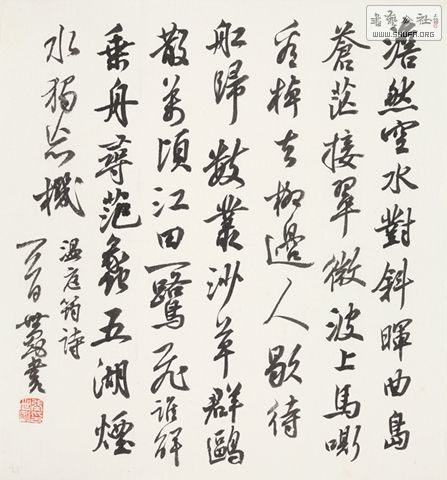 澹然空水對斜暉曲島
蒼茫接翠微波上馬嘶
看棹去柳邊人歇待
舡歸數叢沙草群鷗
散萬頃江田一鷺飛誰解
乘舟尋范蠡五湖煙
水獨忘機
溫庭筠詩
書
書藝公社
WWW.SHUFA.ORG